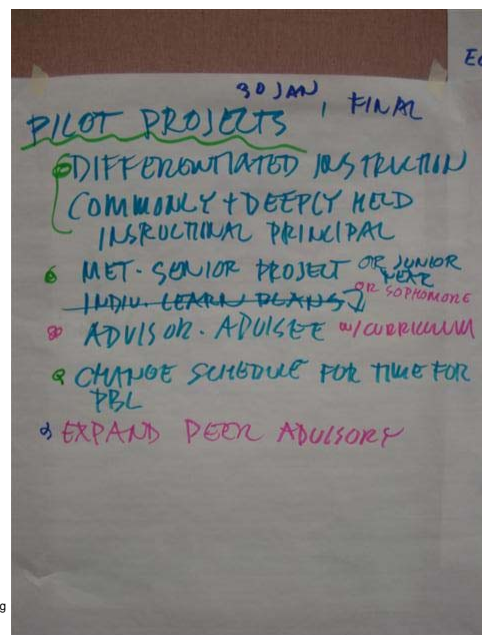 30 JAN, FINAL
Ec
PILOT PROJECTS
DIFFERENTIATED INSTRUCTION
COMMONLY + DEEPLY HELD
INSRUCTIONAL PRINCIPAL
MET. SENIOR PROJECT OR JUNIOR YEAR
OR SOPHOMORE
INDIV. LEARN PLANS
ADVISOR - ADVISEE w/CURRICULUM
CHANGE SCHEDULE FOR TIME FOR
PBL
EXPAND PEER ADVISORY
g